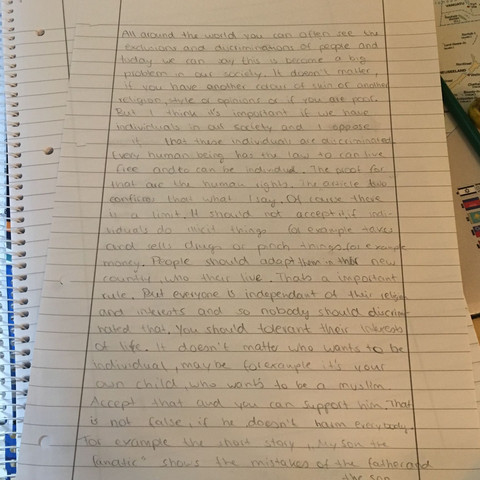 All around the world you can often see the
exclusions and discriminations of people and
today we can say this is become a big
problem in our society. It doesn't matter,
if you have another colour of skin of another
religion, style or opinions or if you are poor.
But I think it's important if we have
individuals in our society and I
it that these individuals are discriminated.
Every human being has the law to can live
free and to can be individual. The proof for
that are the human rights. The article
confirms that what I say. Of cause there
is a limit. It should not accept it, if indi-
viduals do illicit things for example takes
and sells drugs or pinch things for example
money. People should adapt them in their new
country, who their live. Thats a important
rule. But everyone is independent of their religion
and interests and so nobody should discrimi-
nated that. You should tolerant their interests
of life. It doesn't matter who wants to be
individual, maybe for example it's your
own child, who wants to be a myslim
Accept that and you can support him. That
is not false, if he doesn't harm everybody.
For example the short story "My son the
fanatic" shows the mistakes of the father and
the son